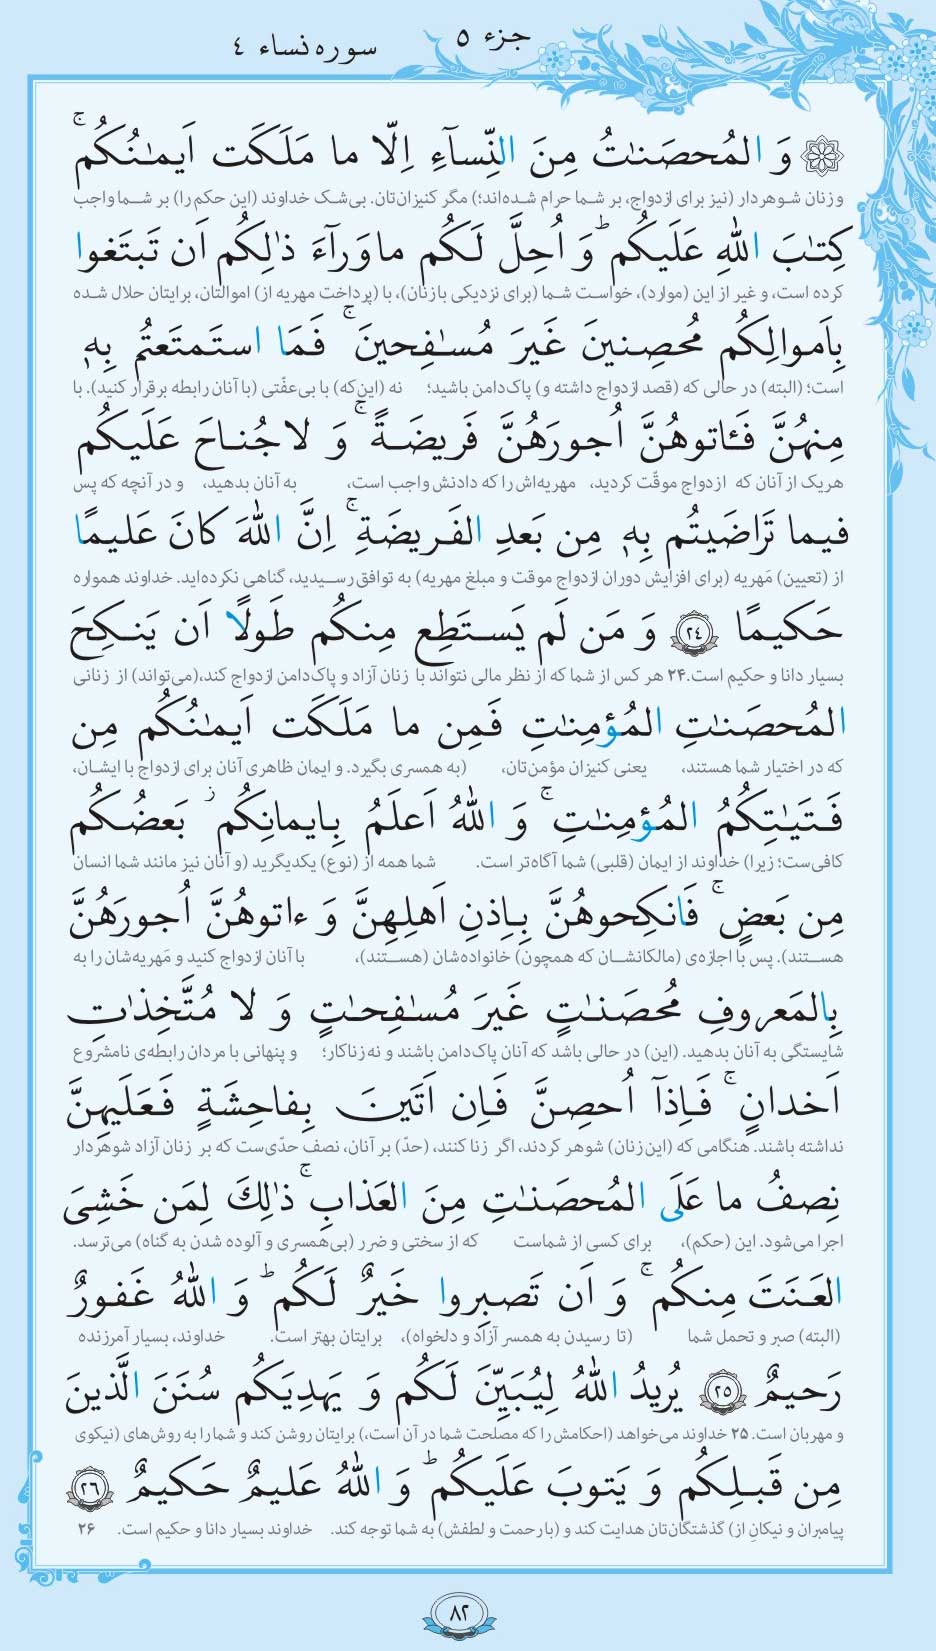 جزء ۵
سوره نساء ۴
وَ المُحصَنٰتُ مِنَ النِّسآءِ اِلّا ما مَلَكَت اَيمٰنُكُم ۚ
و زنان شوهردار (نیز برای ازدواج، بر شما حرام شده‌اند؛) مگر کنیزان‌تان. بی‌شک خداوند (این حکم را) بر شما واجب
كِتٰبَ اللهِ عَلَيكُم ۗ وَ اُحِلَّ لَكُم ما وَرآءَ ذٰلِكُم اَن تَبتَغوا
کرده است، و غیر از این (موارد)، خواست شما (برای نزدیکی با زنان)، با (پرداخت مهریه از) اموالتان، برایتان حلال شده
بِاَموالِكُم مُحصِنينَ غَيرَ مُسٰفِحينَ ۚ فَمَا استَمتَعتُم بِهٖ
است؛ (البته) در حالی که (قصد ازدواج داشته و) پاک‌دامن باشید؛ نه (این‌که) با بی‌عفّتی (با آنان رابطه برقرار کنید). با
مِنهُنَّ فَـٔاتوهُنَّ اُجورَهُنَّ فَريضَةً ۚ وَ لا جُناحَ عَلَيكُم
هریک از آنان که ازدواج موقّت کردید، مهریه‌اش را که دادنش واجب است، به آنان بدهید، و در آنچه که پس
فيما تَراضَيتُم بِهٖ مِن بَعدِ الفَريضَةِ ۚ اِنَّ اللهَ كانَ عَليمًا
از (تعیین) مَهریه (برای افزایش دوران ازدواج موقت و مبلغ مهریه) به توافق رسیدید، گناهی نکرده‌اید. خداوند همواره
حَكيمًا ﴿٢٤﴾ وَ مَن لَم يَستَطِع مِنكُم طَولًا اَن يَنكِحَ
بسیار دانا و حکیم است. ۲۴ هر کس از شما که از نظر مالی نتواند با زنان آزاد و پاک‌دامن ازدواج کند، (می‌تواند) از زنانی
المُحصَنٰتِ المُؤمِنٰتِ فَمِن ما مَلَكَت اَيمٰنُكُم مِن
که در اختیار شما هستند، یعنی کنیزان مؤمن‌تان، (به همسری بگیرد. و ایمان ظاهری آنان برای ازدواج با ایشان،
فَتَيٰتِكُمُ المُؤمِنٰتِ ۚ وَ اللهُ اَعلَمُ بِايمانِكُم ۚ بَعضُكُم
کافی‌ست؛ زیرا) خداوند از ایمان (قلبی) شما آگاه‌تر است. شما همه از (نوع) یکدیگرید (و آنان نیز مانند شما انسان
مِن بَعضٍ ۚ فَانكِحوهُنَّ بِاِذنِ اَهلِهِنَّ وَ ءاتوهُنَّ اُجورَهُنَّ
هستند). پس با اجازه‌ی (مالکانشان که همچون) خانواده‌شان (هستند)، با آنان ازدواج کنید و مَهریه‌شان را به
بِالمَعروفِ مُحصَنٰتٍ غَيرَ مُسٰفِحٰتٍ وَ لا مُتَّخِذٰتِ
شایستگی به آنان بدهید. (این) در حالی باشد که آنان پاک‌دامن باشند و نه زناکار؛ و پنهانی با مردان رابطه‌ی نامشروع
اَخدانٍ ۚ فَاِذآ اُحصِنَّ فَاِن اَتَينَ بِفاحِشَةٍ فَعَلَيهِنَّ
نداشته باشند. هنگامی که (این زنان) شوهر کردند، اگر زنا کنند، (حدّ) بر آنان، نصف حدّی‌ست که بر زنان آزاد شوهردار
نِصفُ ما عَلَى المُحصَنٰتِ مِنَ العَذابِ ۚ ذٰلِكَ لِمَن خَشِىَ
اجرا می‌شود. این (حکم)، برای کسی از شماست که از سختی و ضرر (بی‌همسری و آلوده شدن به گناه) می‌ترسد.
العَنَتَ مِنكُم ۚ وَ اَن تَصبِروا خَيرٌ لَكُم ۗ وَ اللهُ غَفورٌ
(البته) صبر و تحمل شما (تا رسیدن به همسر آزاد و دلخواه)، برایتان بهتر است. خداوند، بسیار آمرزنده
رَحيمٌ ﴿٢٥﴾ يُريدُ اللهُ لِيُبَيِّنَ لَكُم وَ يَهدِيَكُم سُنَنَ الَّذينَ
و مهربان است. ۲۵ خداوند می‌خواهد (احکامش را که مصلحت شما در آن است،) برایتان روشن کند و شما را به روش‌های (نیکوی
مِن قَبلِكُم وَ يَتوبَ عَلَيكُم ۗ وَ اللهُ عَليمٌ حَكيمٌ ﴿٢٦﴾
پیامبران و نیکانِ از) گذشتگان‌تان هدایت کند و (با رحمت و لطفش) به شما توجه کند. خداوند بسیار دانا و حکیم است. ۲۶
۸۲